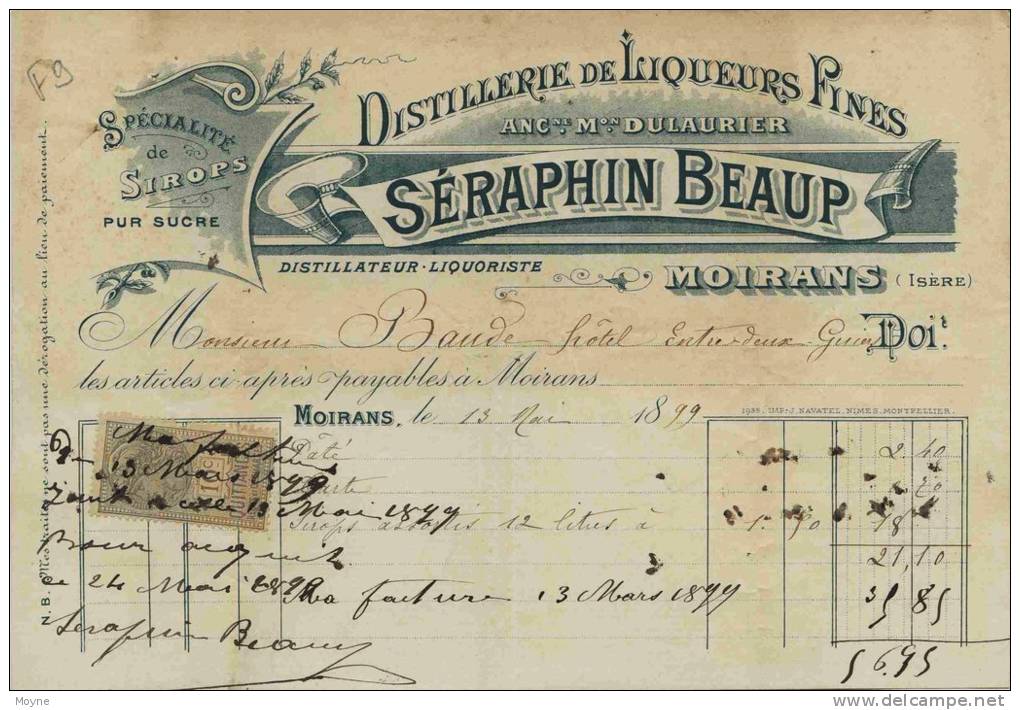 F9
DISTILLERIE DE LIQUEURS FINES
ANC.NE M.ON DULAURIER
SÉRAPHIN BEAUP
SPÉCIALITÉ
de
SIROPS
PUR SUCRE
DISTILLATEUR-LIQUORISTE
MOIRANS (ISÈRE)
N.B. Mes traites ne sont pas une dérogation au lieu de paiement.
Monsieur Baude hôtel Entre-deux-Guiers Doit
les articles ci-après payables à Moirans
MOIRANS, le 13 Mai 1899
1935. IMP. J. NAVATEL, NIMES, MONTPELLIER.
Pâté 2 40
20
Sirops assortis 12 litres à 1.50 18
21,10
Ma facture 13 Mars 1899 35 85
56.95
QUITTANCES
Ma facture
13 Mars 1899
Joint à celle 13 Mai 1899
Pour acquit
ce 24 Mai 1899
Seraphin Beaup
Moyne
www.delcampe.net